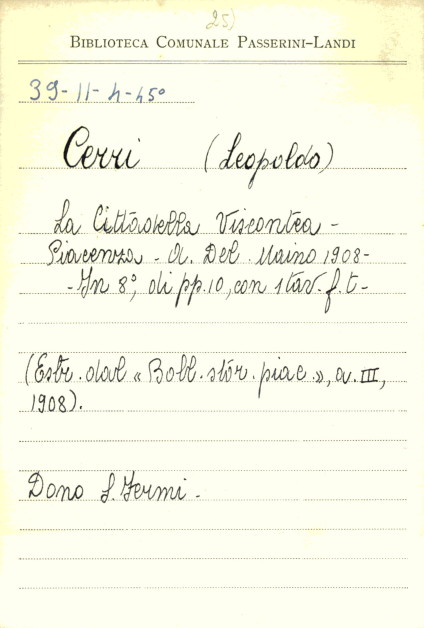 25)
BIBLIOTECA COMUNALE PASSERINI-LANDI
39-11-4-45°
Cerri (Leopoldo)
La Cittadella Viscontea -
Piacenza - A. Del Maino 1908-
- In 8°, di pp. 10, con 1 tav. f. t -
(Estr. dal « Boll. stor. piac. », a. III,
1908).
Dono S. Fermi -